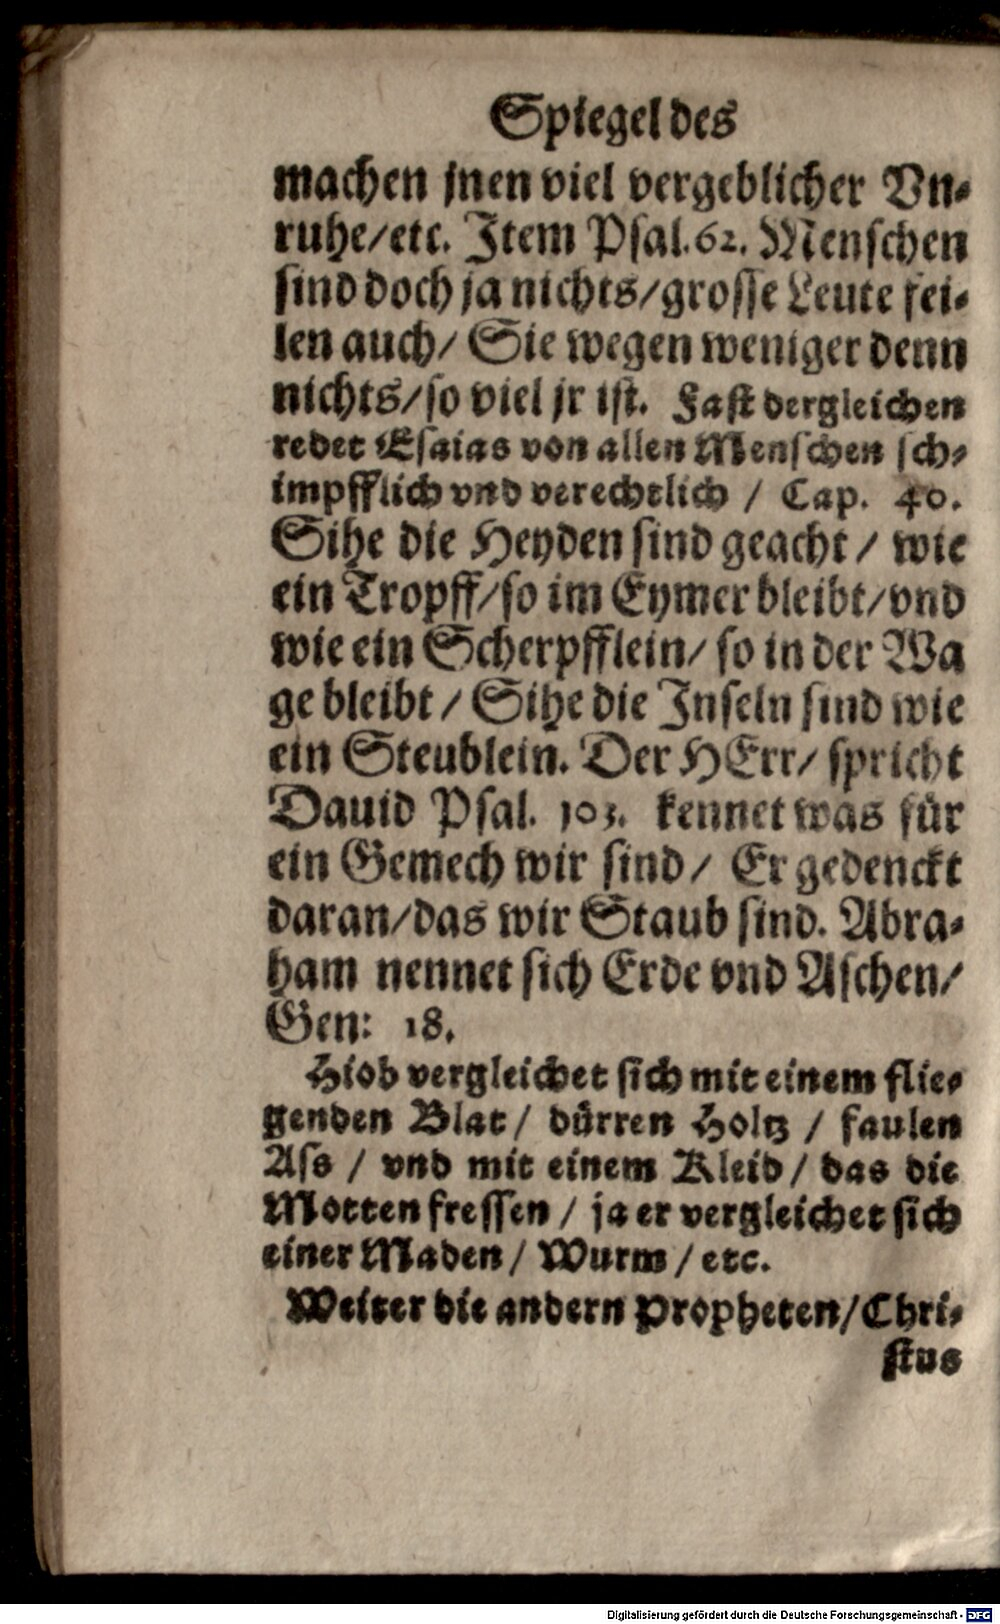 Spiegel des
machen jnen viel vergeblicher Vn-
ruhe/etc. Item Psal.62. Menschen
sind doch ja nichts/grosse Leute fei-
len auch/ Sie wegen weniger denn
nichts/so viel jr ist. Fast dergleichen
redet Esaias von allen Menschen sch-
impfflich vnd verechtlich / Cap. 40.
Sihe die Heyden sind geacht / wie
ein Tropff/so im Eymer bleibt/vnd
wie ein Scherpfflein/ so in der Wa
ge bleibt / Sihe die Inseln sind wie
ein Steublein. Der HErr/ spricht
Dauid Psal. 103. kennet was für
ein Gemech wir sind/ Er gedenckt
daran/das wir Staub sind. Abra-
ham nennet sich Erde vnd Aschen/
Gen: 18.
Hiob vergleichet sich mit einem flie-
genden Blat / dürren Holtz / faulen
Ass / vnd mit einem Kleid / das die
Motten fressen / ja er vergleichet sich
einer Maden / Wurm / etc.
Weiter die andern Propheten/Chri-
stus
Digitalisierung gefördert durch die Deutsche Forschungsgemeinschaft - DFG